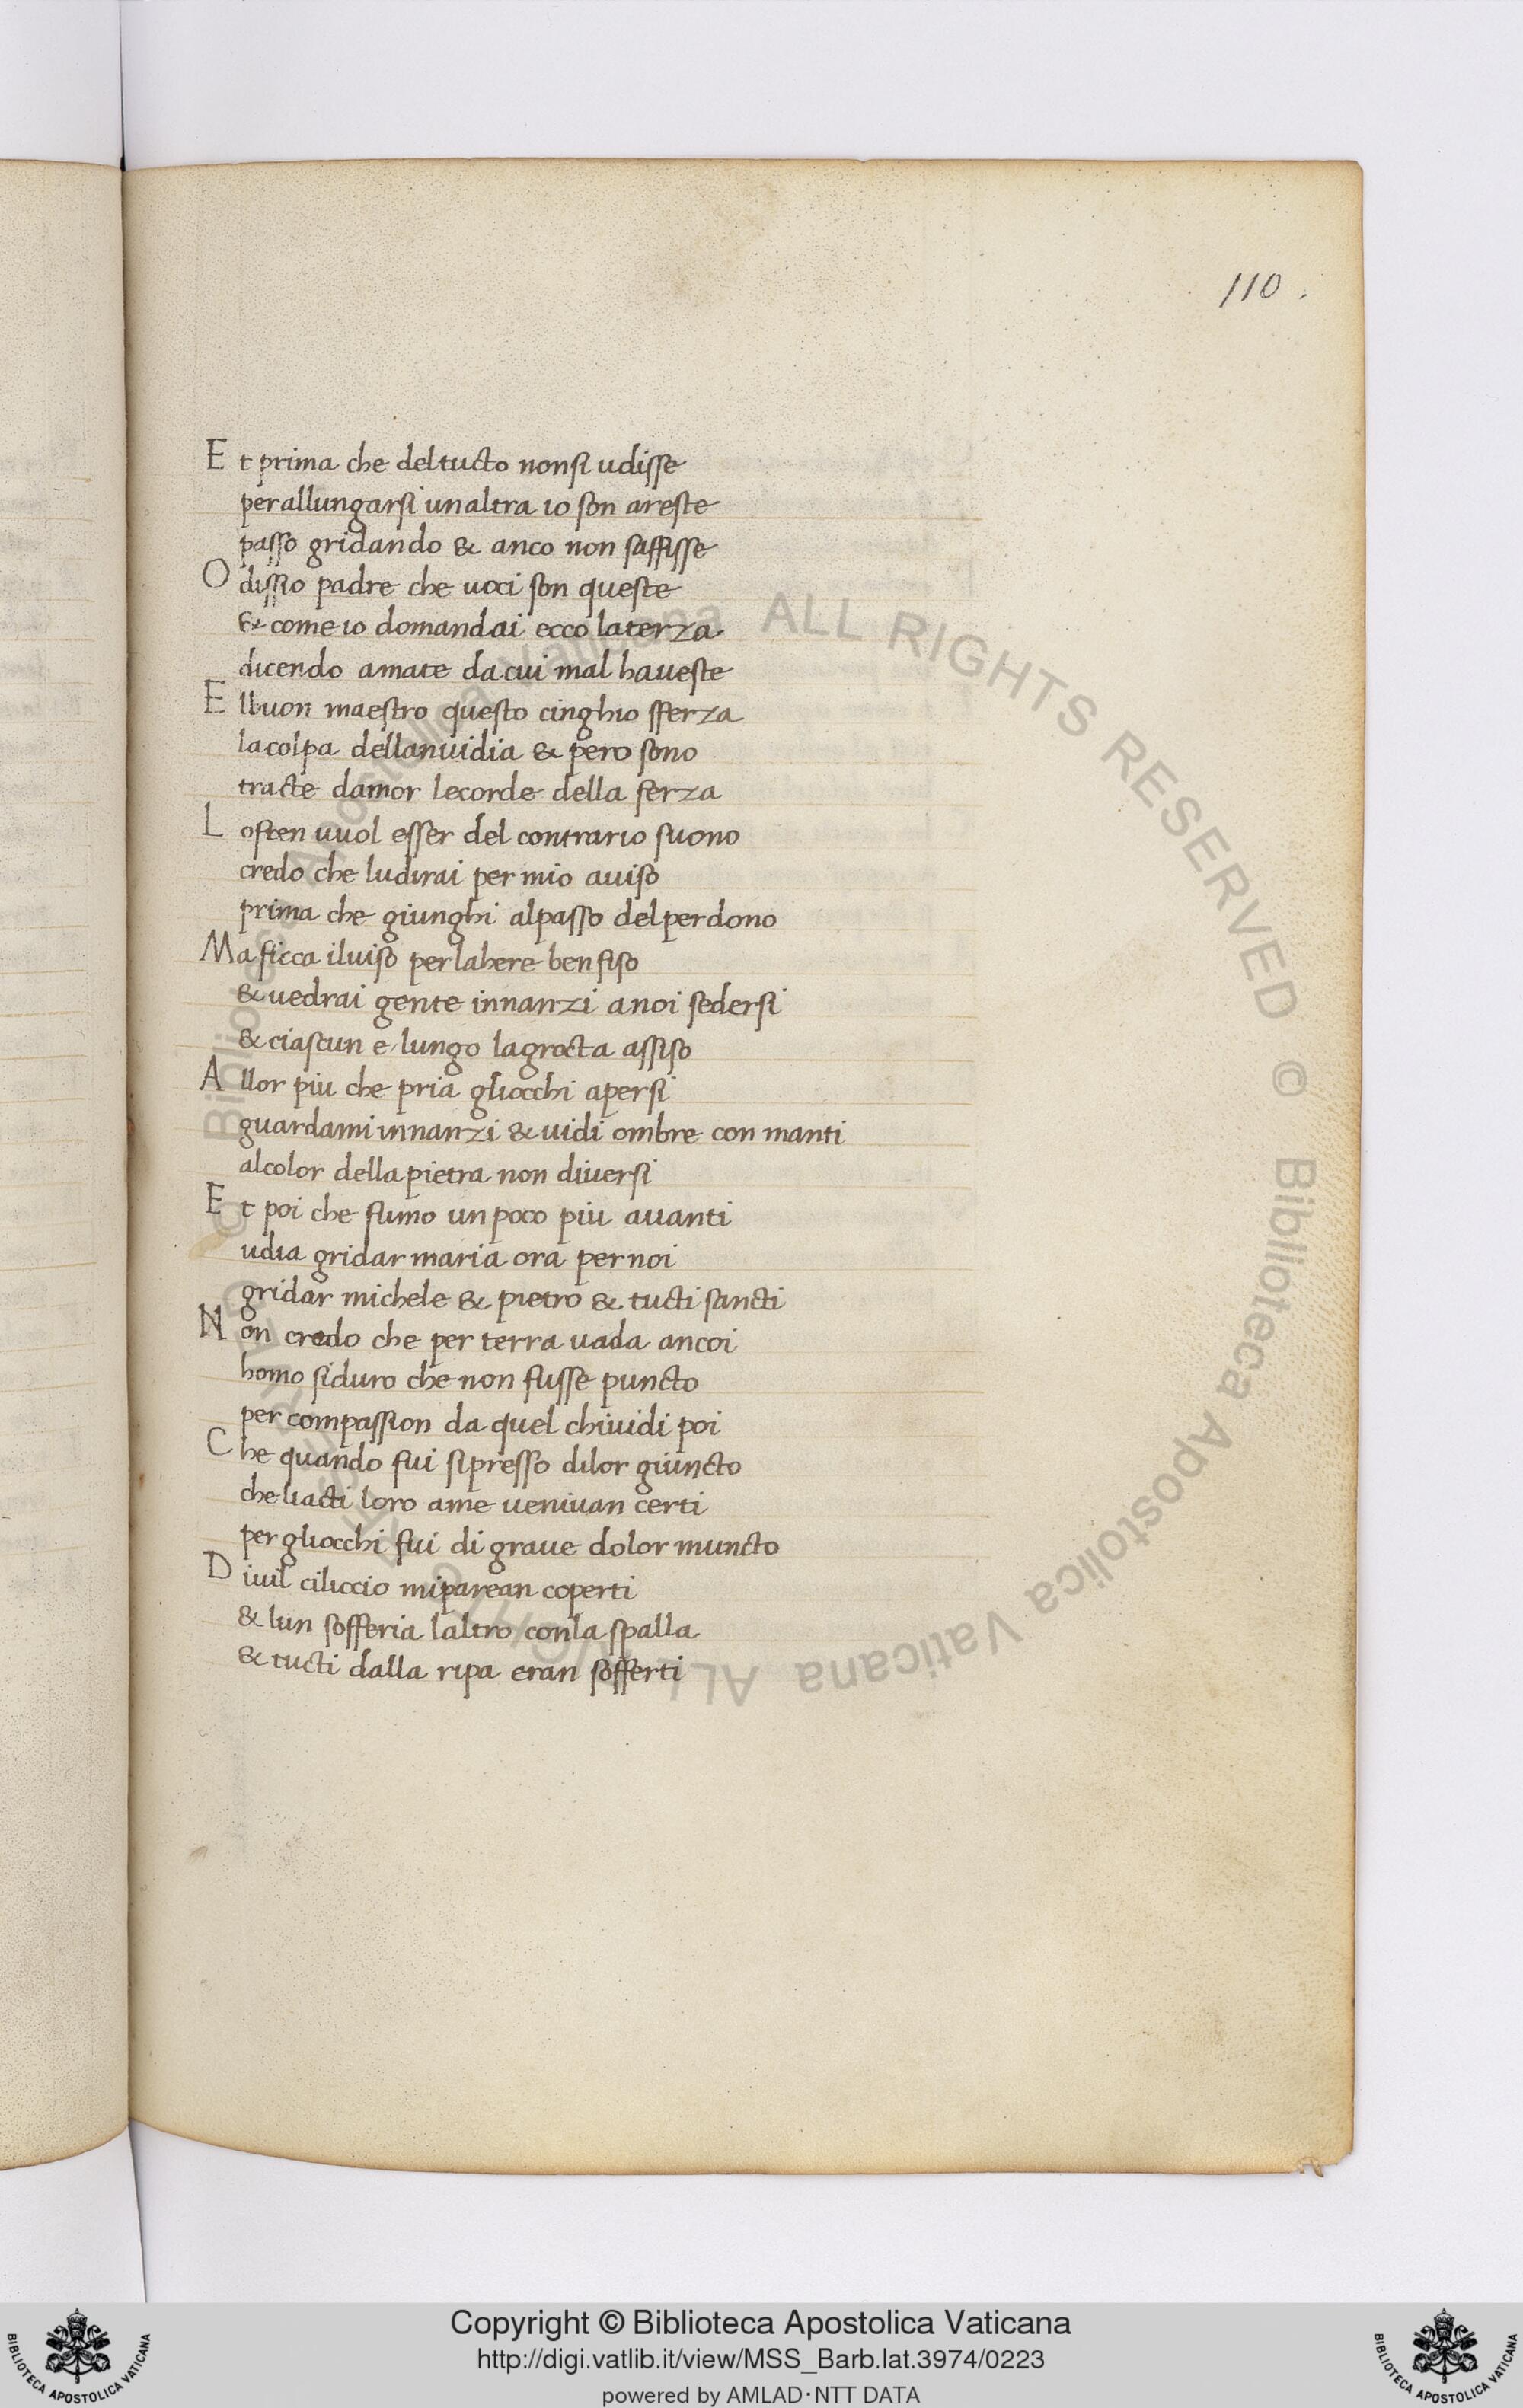 110.
Et prima che deltucto nonsi udisse
perallungarsi unaltra io son areste
passo gridando & anco non saffisse
O dissio padre che uoci son queste
& come io domandai ecco laterza
dicendo amate dacui mal haueste
Elbuon maestro questo cinghio sferza
lacolpa dellanuidia & pero sono
tracte damor lecorde della ferza
Lo fren uuol esser del contrario suono
credo che ludirai per mio auiso
prima che giunghi alpasso delperdono
Ma ficca iluiso perlahere ben fiso
& uedrai gente innanzi anoi sedersi
& ciascun e lungo lagrocta assiso
Allor piu che pria gliocchi apersi
guardami innanzi & uidi ombre con manti
alcolor della pietra non diuersi
Et poi che fumo un poco piu auanti
udia gridar maria ora per noi
gridar michele & pietro & tucti sancti
Non credo che per terra uada ancoi
homo siduro che non fusse puncto
per compassion da quel chiuidi poi
Che quando fui sipresso dilor giuncto
che liacti loro ame ueniuan certi
per gliocchi fui di graue dolor muncto
Diuil ciliccio miparean coperti
& lun sofferia laltro conla spalla
& tucti dalla ripa eran sofferti
© Biblioteca Apostolica Vaticana ALL RIGHTS RESERVED © Biblioteca Apostolica Vaticana ALL RIGHTS RESERVED
Copyright © Biblioteca Apostolica Vaticana
http://digi.vatlib.it/view/MSS_Barb.lat.3974/0223
powered by AMLAD·NTT DATA
BIBLIOTECA APOSTOLICA VATICANA
BIBLIOTECA APOSTOLICA VATICANA